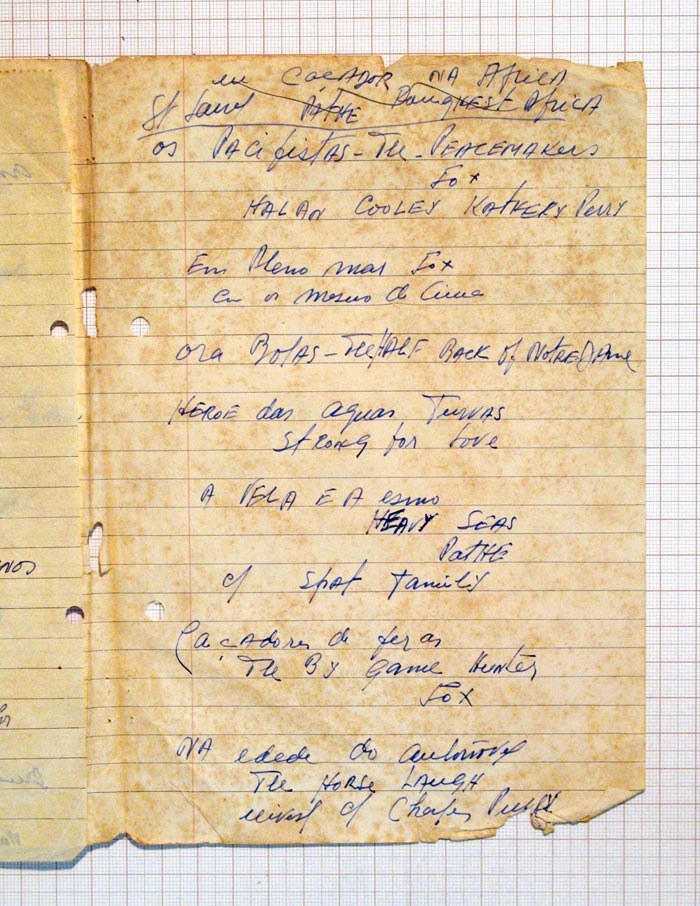 um CACADOR NA Africa
PATHE Africa
os Pacifistas - The - Peacemakers
Fox
HALAN COOLEY KATHERY Perry
Em Pleno mar Fox
em os mesmo de Cima
ora Bolas - The HALF BACK of Notre Dame
HEROE das aguas Turvas
STRONG for Love
A VELA E A esmo
HEAVY SEAS
PATHE
c/ Spat family
Caçadores de feras
The By Game Hunter
Fox
NA edede do automovel
The HORSE LAUGH
c/ Charles
NOS